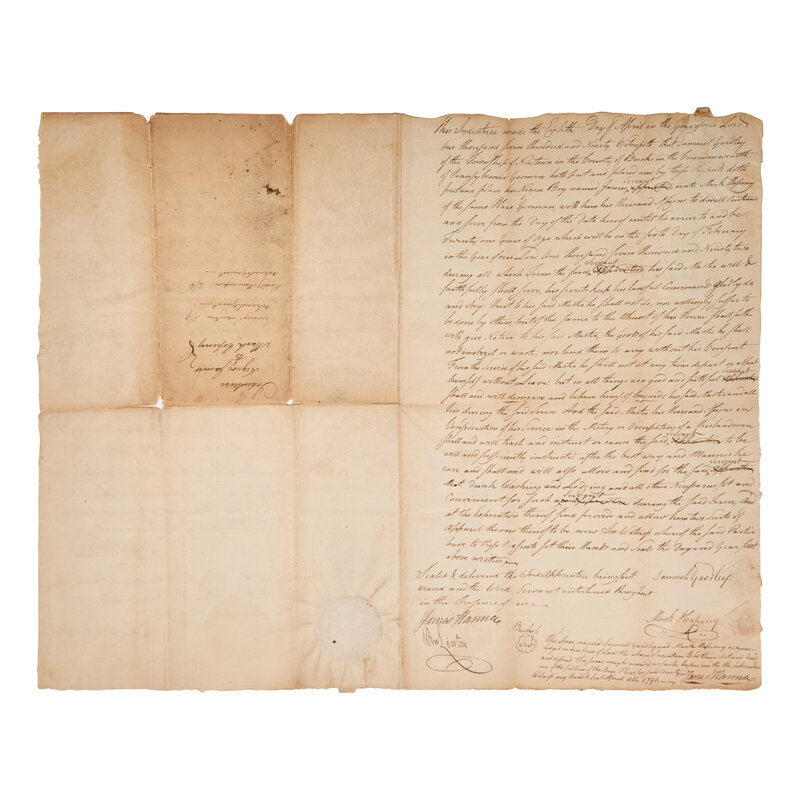 This Indenture made the Eighth Day of April in the Year of our Lord
one thousand seven hundred and Ninety Witnesseth that Samuel Yardley
of the Township of Newtown in the County of Bucks in the Commonwealth
of Pennsylvania Yeoman hath put and placed and by these Presents doth
put and place his Negro Boy named James, Servant apprentice unto Mark Hapeny
of the same Place Yeoman, with him his Heirs and Assigns to dwell Continue
and serve from the Day of the Date hereof until he arrive to and be
Twenty one Years of Age which will be on the Day of February
in the Year of our Lord One thousand seven hundred and Ninety two
during all which Term the said Servant Apprentice his said Master well &
faithfully shall serve, his secrets keep his lawful Commands gladly do
and obey. Hurt to his said Master he shall not do, nor willingly suffer to
be done by others, but of the same to the utmost of his Power shall forth
with give Notice to his said Master, the Goods of his said Master he shall
not imbezel or waste, nor lend them to any without his Consent
From the service of his said Master he shall not at any time depart or absent
himself without Leave. but in all things as a good and faithful Servant Apprentice
shall and will demean and behave himself towards his said Master and all
his during the said Term. And the said Master his Heirs and Assigns in
Consideration of his Service in the Mistery or Occupation of a Husbandman
shall and will teach and instruct or cause the said, Servant Apprentice to be
well and sufficiently instructed after the best way and Manner he
can and shall and will also Allow and find for the said, Servant Apprentice
Meat Drink Washing and Lodging and all other Necessaries fit and
Convenient for such Servant apprentice during the said Term, And
at the Expiration thereof find provide and allow him two Suits of
Apparel the one thereof to be new In Witness whereof the said Parties
have to these Presents set their Hands and Seals the Day and Year first
above written
Sealed & delivered the Word Apprentice being first
erased and the Word Servant interlined throughout
in the Presence of us
James Hanna
Wm Linton
Samuel Yardley
Mark Hapeny
Bucks ss
Seal
The above named Samuel Yardley and Mark Hapeny
the above Indenture to be their Act and Deed
and desired the same may be recorded as such before me the Subscriber
one of the Justices of the
Witness my Hand & Seal April 1790
James Hanna
Indenture
Negro James
to
Mark Hapeny